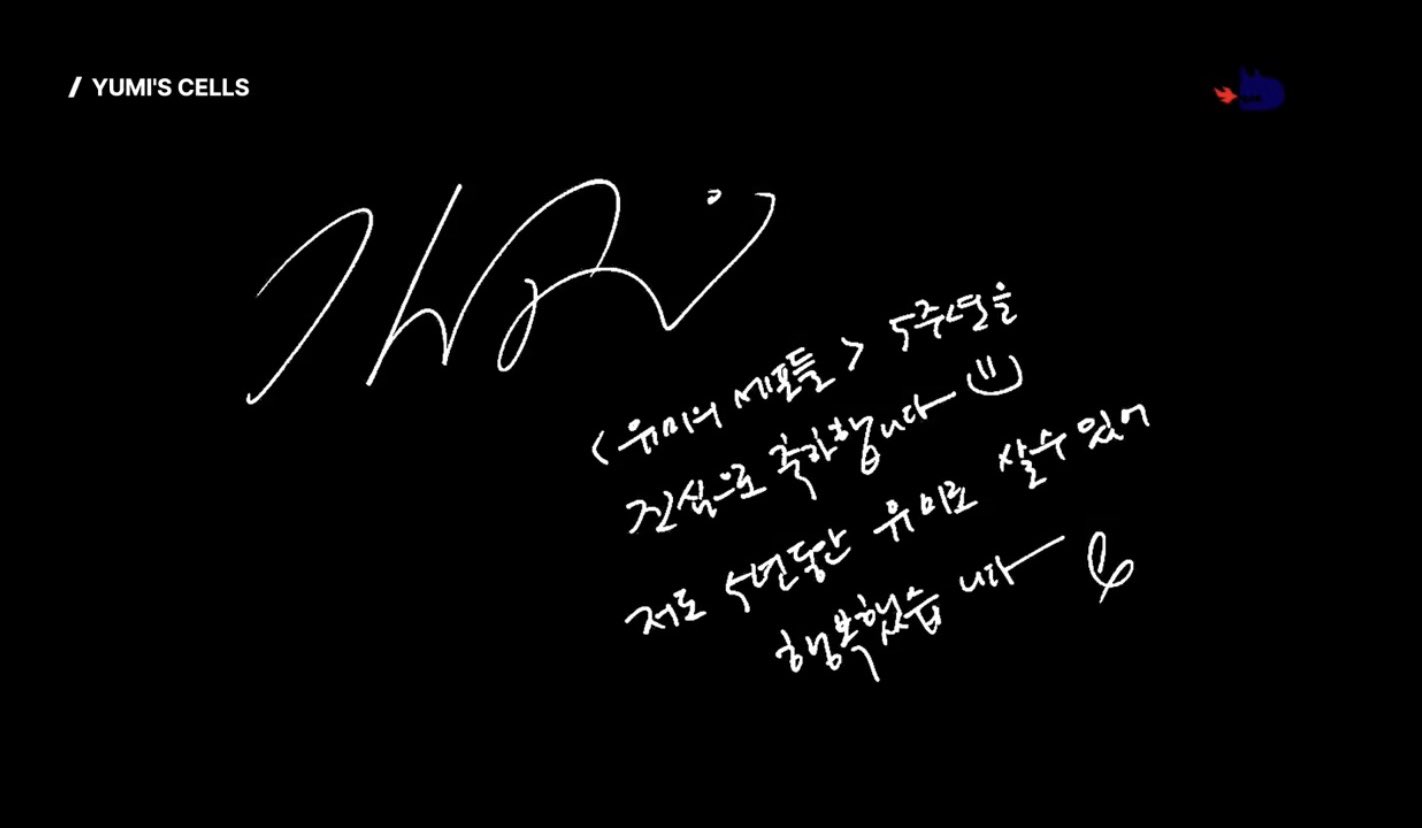 / YUMI'S CELLS
<유미의 세포들> 5주년을
진심으로 축하합니다
저도 5년동안 유미로 살수있어
행복했습니다